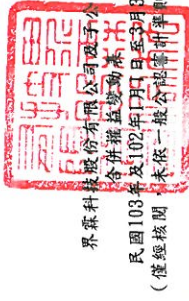 界霖科技股份有限公司及子公
合併權益變動表
民國103年及102年1月1日至3月3
(僅經核閱,未依一般公認審計準則